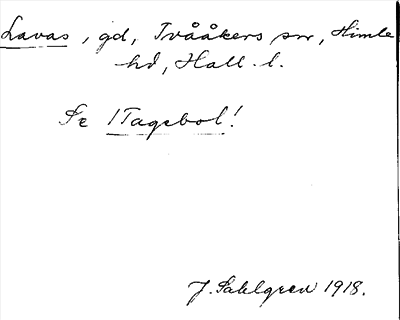 Lavas, gd, Tvååkers sn, Himle
hd, Hall. l.
Se 1 Tagebol!
J. Sahlgren 1918.